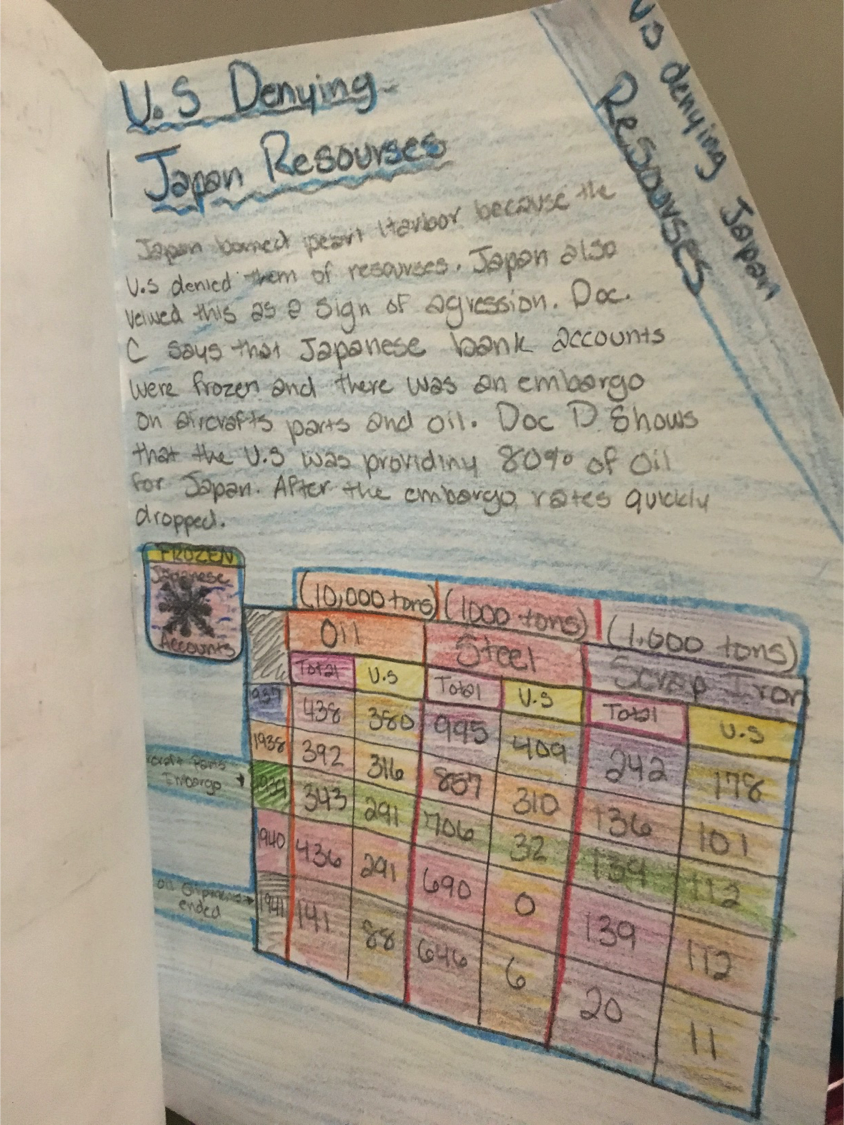 U.S Denying
Japan Resourses
US denying Japan
Resourses
Japan bomed pearl Harbor because the
U.S denied them of resourses. Japan also
veiwed this as a sign of agression. Doc.
C says that Japanese bank accounts
were frozen and there was an embargo
on aircrafts parts and oil. Doc D Shows
that the U.S was providiny 80% of Oil
for Japan. After the embargo, rates quickly
dropped.
FROZEN
Japanese
Accounts
(10,000 tons) (1000 tons) (1,000 tons)
Oil Steel Scrap Iron
Total U.S Total U.S Total U.S
1937 438 380 995 409 242 178
1938 392 316 857 310 136 101
1939 343 291 706 32 139 112
1940 436 291 690 0 139 112
1941 141 88 646 6 20 11
Parts
Embargo
Oil
ended